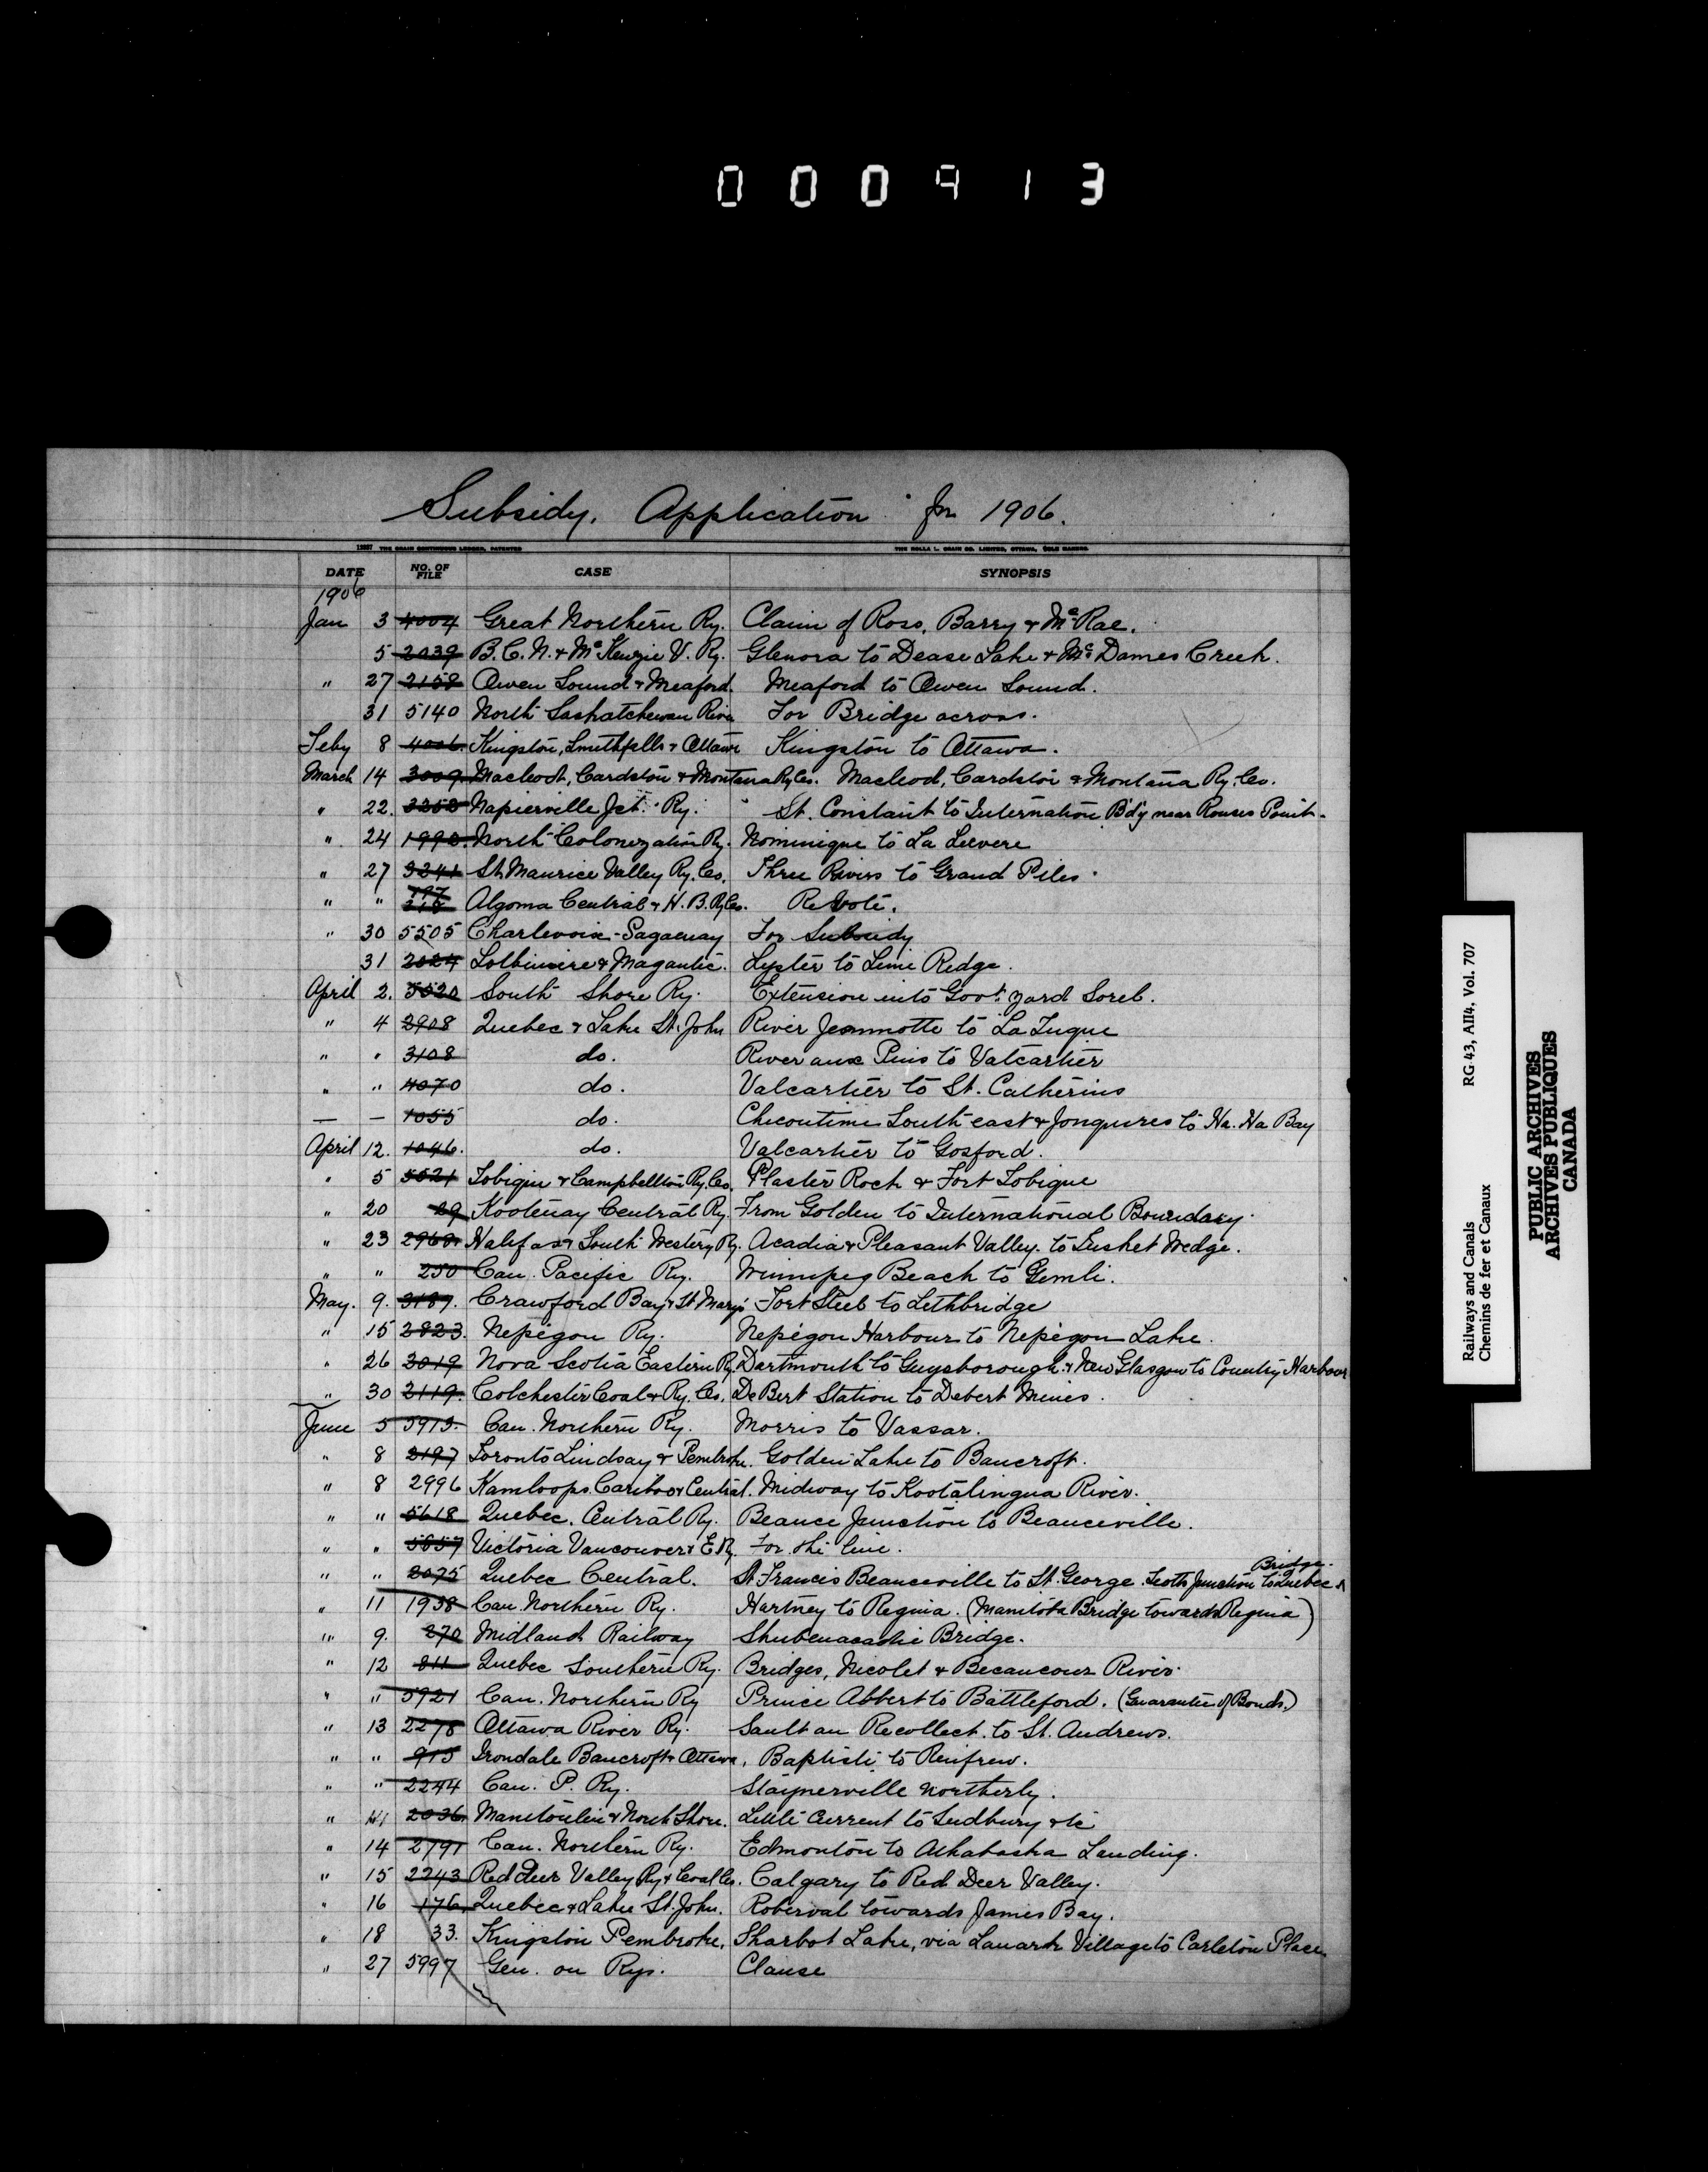 000913
Subsidy. Application for 1906.
DATE NO. OF FILE CASE SYNOPSIS
1906
Jan 3 4004 Great Northern Ry. Claim of Ross, Barry & McRae.
5 2039 B.C.N. & McKenzie V. Ry. Glenora to Dease Lake & McDames Creek.
" 27 2158 Owen Sound & Meaford. Meaford to Owen Sound.
31 5140 North Saskatchewan River For Bridge across.
Feby 8 4006 Kingston, Smithfalls & Ottawa Kingston to Ottawa.
March 14 3009 Macleod, Cardston & Montana Ry Co. Macleod, Cardston & Montana Ry. Co.
" 22. 3250 Napierville Jct. Ry. St. Constant to Internation Bdy near Rouses Point.
" 24 1990. North Colonization Ry. Nominique to La Lievere
" 27 3241 St. Maurice Valley Ry. Co. Three Rivers to Grand Piles.
" " 197 Algoma Central & H.B. Ry Co. Revote.
" 30 5505 Charlevoix-Saguenay For Subsidy
31 2024 Lotbiniere & Magantic. Lyster to Lime Ridge.
April 2. 5020 South Shore Ry. Extension into Govt. yard Sorel.
" 4 2908 Quebec & Lake St. John River Jeannotte to La Tuque
" " 3108 do. River aux Pins to Valcartier
" " 4070 do. Valcartier to St. Catherins
— — 1055 do. Checoutimi South east & Jonquires to Ha. Ha Bay
April 12. 1046. do. Valcartier to Gosford.
" 5 5021 Tobique & Campbellton Ry. Co. Plaster Rock & Fort Tobique
" 20 29 Kootenay Central Ry. From Golden to International Boundary.
" 23 2960 Halifax & South Western Ry. Acadia & Pleasant Valley. to Tusket Wedge.
" " 250 Can. Pacific Ry. Winnipeg Beach to Gimli.
May. 9. 3187. Crawford Bay & St Mary's Fort Steel to Lethbridge
" 15 2823. Nepegon Ry. Nepegon Harbour to Nepegon Lake.
" 26 3019 Nova Scotia Eastern Ry. Dartmouth to Guysborough. & New Glasgow to Country Harbour
" 30 3119. Colchester Coal & Ry. Co. De Bert Station to Debert Mines.
June 5 5913. Can. Northern Ry. Morris to Vassar.
" 8 2197 Toronto Lindsay & Pembroke. Golden Lake to Bancroft.
" 8 2996 Kamloops. Cariboo & Central. Midway to Kootalingua River.
" " 5618 Quebec. Central Ry. Beauce Junction to Beauceville.
" " 5657 Victoria Vancouver & E Ry. For the line.
Bridge.
" " 2075 Quebec Central. St Francis Beauceville to St. George. Scotts Junction to Quebec
" 11 1938 Can. Northern Ry. Hartney to Regina. (Manitoba Bridge towards Regina)
" 9. 270 Midland Railway Shubenacadie Bridge.
" 12 811 Quebec Southern Ry. Bridges, Nicolet & Becancour River.
" " 5921 Can. Northern Ry Prince Abbert to Battleford. (Guarantee of Bonds.)
" 13 2278 Ottawa River Ry. Sault au Recollect. to St. Andrews.
" " 915 Irondale Bancroft & Ottawa, Baptiste to Renfrew.
" " 2244 Can. P. Ry. Staynerville northerly.
" 2036 Manitoulin & North Shore. Little Current to Sudbury &c
" 14 2791 Can. Northern Ry. Edmonton to Athabasha Landing.
" 15 2243 Red Deer Valley Ry & Coal Co. Calgary to Red Deer Valley.
" 16 176. Quebec & Lake St. John. Roberval towards James Bay.
" 18 33. Kingston Pembroke, Sharbot Lake, via Lanark Village to Carleton Place.
" 27 5997 Gen. on Rys. Clause
Railways and Canals RG 43, A II 4, Vol. 707
Chemins de fer et Canaux
PUBLIC ARCHIVES
ARCHIVES PUBLIQUES
CANADA